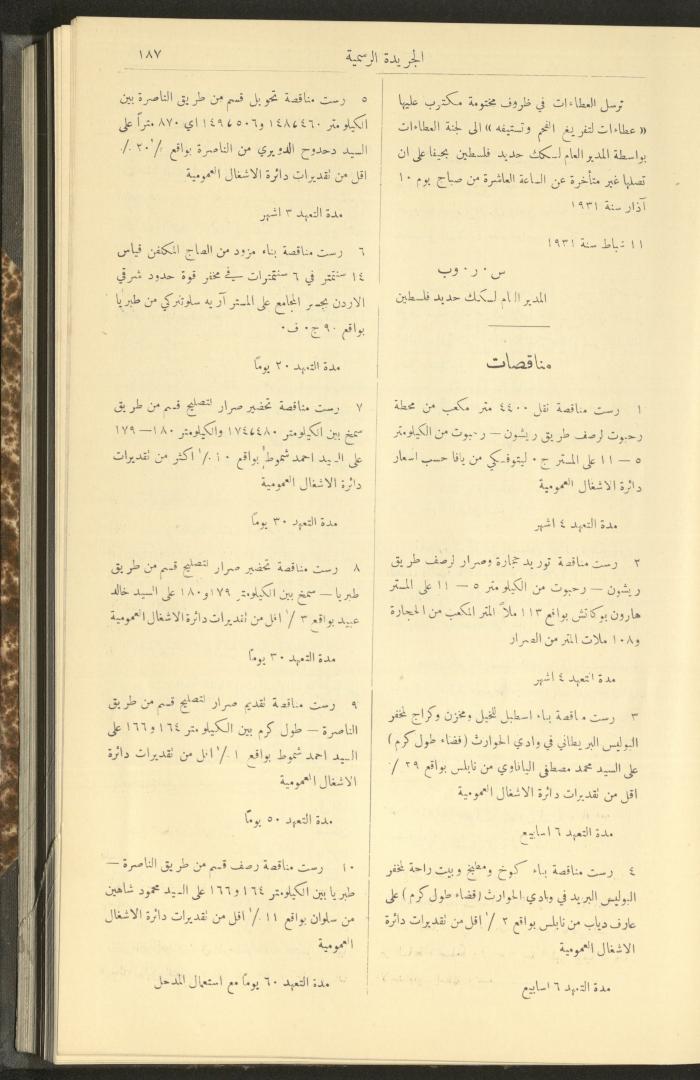 الجريدة الرسمية
١٨٧
ترسل العطاءات في ظروف مختومة مكتوب عليها
« عطاءات لتفريغ الفحم وتستيفه » الى لجنة العطاءات
بواسطة المدير العام لسكك حديد فلسطين بحيفا على ان
تصلها غير متأخرة عن الساعة العاشرة من صباح يوم ١٠
آذار سنة ١٩٣١
١١ شباط سنة ١٩٣١
س . ر . وب
المدير العام لسكك حديد فلسطين
مناقصات
١ رست مناقصة نقل ٤٤٠٠ متر مكعب من محطة
رحبوت لرصف طريق ريشون – رحبوت من الكيلومتر
٥ – ١١ على المستر ج . ليتوفسكي من يافا حسب اسعار
دائرة الاشغال العمومية
مدة التعهد ٤ اشهر
٢ رست مناقصة توريد حجارة وصرار لرصف طريق
ريشون – رحبوت من الكيلومتر ٥ – ١١ على المستر
هارون بوكاتش بواقع ١١٣ ملاً المتر المكعب من الحجارة
و١٠٨ ملات المتر من الصرار
مدة التعهد ٤ اشهر
٣ رست مناقصة بناء اسطبل للخيل ومخزن وكراج لمخفر
البوليس البريطاني في وادي الحوارث ( قضاء طول كرم )
على السيد محمد مصطفى اليافاوي من نابلس بواقع ٢٩ ٪
اقل من تقديرات دائرة الاشغال العمومية
مدة التعهد ٦ اسابيع
٤ رست مناقصة بناء كوخ ومطبخ وبيت راحة لمخفر
البوليس البريد في وادي الحوارث ( قضاء طول كرم ) على
عارف دياب من نابلس بواقع ٢ ٪ اقل من تقديرات دائرة
الاشغال العمومية
مدة التعهد ٦ اسابيع
٥ رست مناقصة تحويل قسم من طريق الناصرة بين
الكيلومتر ١٤٨٬٤٦٠ و١٤٩٬٥٠٦ اي ٨٧٠ متراً على
السيد دحدوح الدويري من الناصرة بواقع ٢٠ ٪
اقل من تقديرات دائرة الاشغال العمومية
مدة التعهد ٣ اشهر
٦ رست مناقصة بناء مزود من الصاج المكلفن قياس
١٤ سنتمتر في ٦ سنتمترات في مخفر قوة حدود شرقي
الاردن بجسر المجامع على المستر آريه سلوتركي من طبريا
بواقع ٩٠ ج . ف .
مدة التعهد ٢٠ يوماً
٧ رست مناقصة تحضير صرار لتصليح قسم من طريق
سمخ بين الكيلومتر ١٧٤٬٤٨٠ والكيلومتر ١٨٠ – ١٧٩
على السيد احمد شموط بواقع ١٠ ٪ اكثر من تقديرات
دائرة الاشغال العمومية
مدة التعهد ٣٠ يوماً
٨ رست مناقصة تحضير صرار لتصليح قسم من طريق
طبريا – سمخ بين الكيلومتر ١٧٩ و١٨٠ على السيد خالد
عبيد بواقع ٣ ٪ اقل من تقديرات دائرة الاشغال العمومية
مدة التعهد ٣٠ يوماً
٩ رست مناقصة تقديم صرار لتصليح قسم من طريق
الناصرة – طول كرم بين الكيلومتر ١٦٤ و١٦٦ على
السيد احمد شموط بواقع ١ ٪ اقل من تقديرات دائرة
الاشغال العمومية
مدة التعهد ٥٠ يوماً
١٠ رست مناقصة رصف قسم من طريق الناصرة –
طبريا بين الكيلومتر ١٦٤ و١٦٦ على السيد محمود شاهين
من سلوان بواقع ١١ ٪ اقل من تقديرات دائرة الاشغال
العمومية
مدة التعهد ٦٠ يوماً مع استعمال المدحل